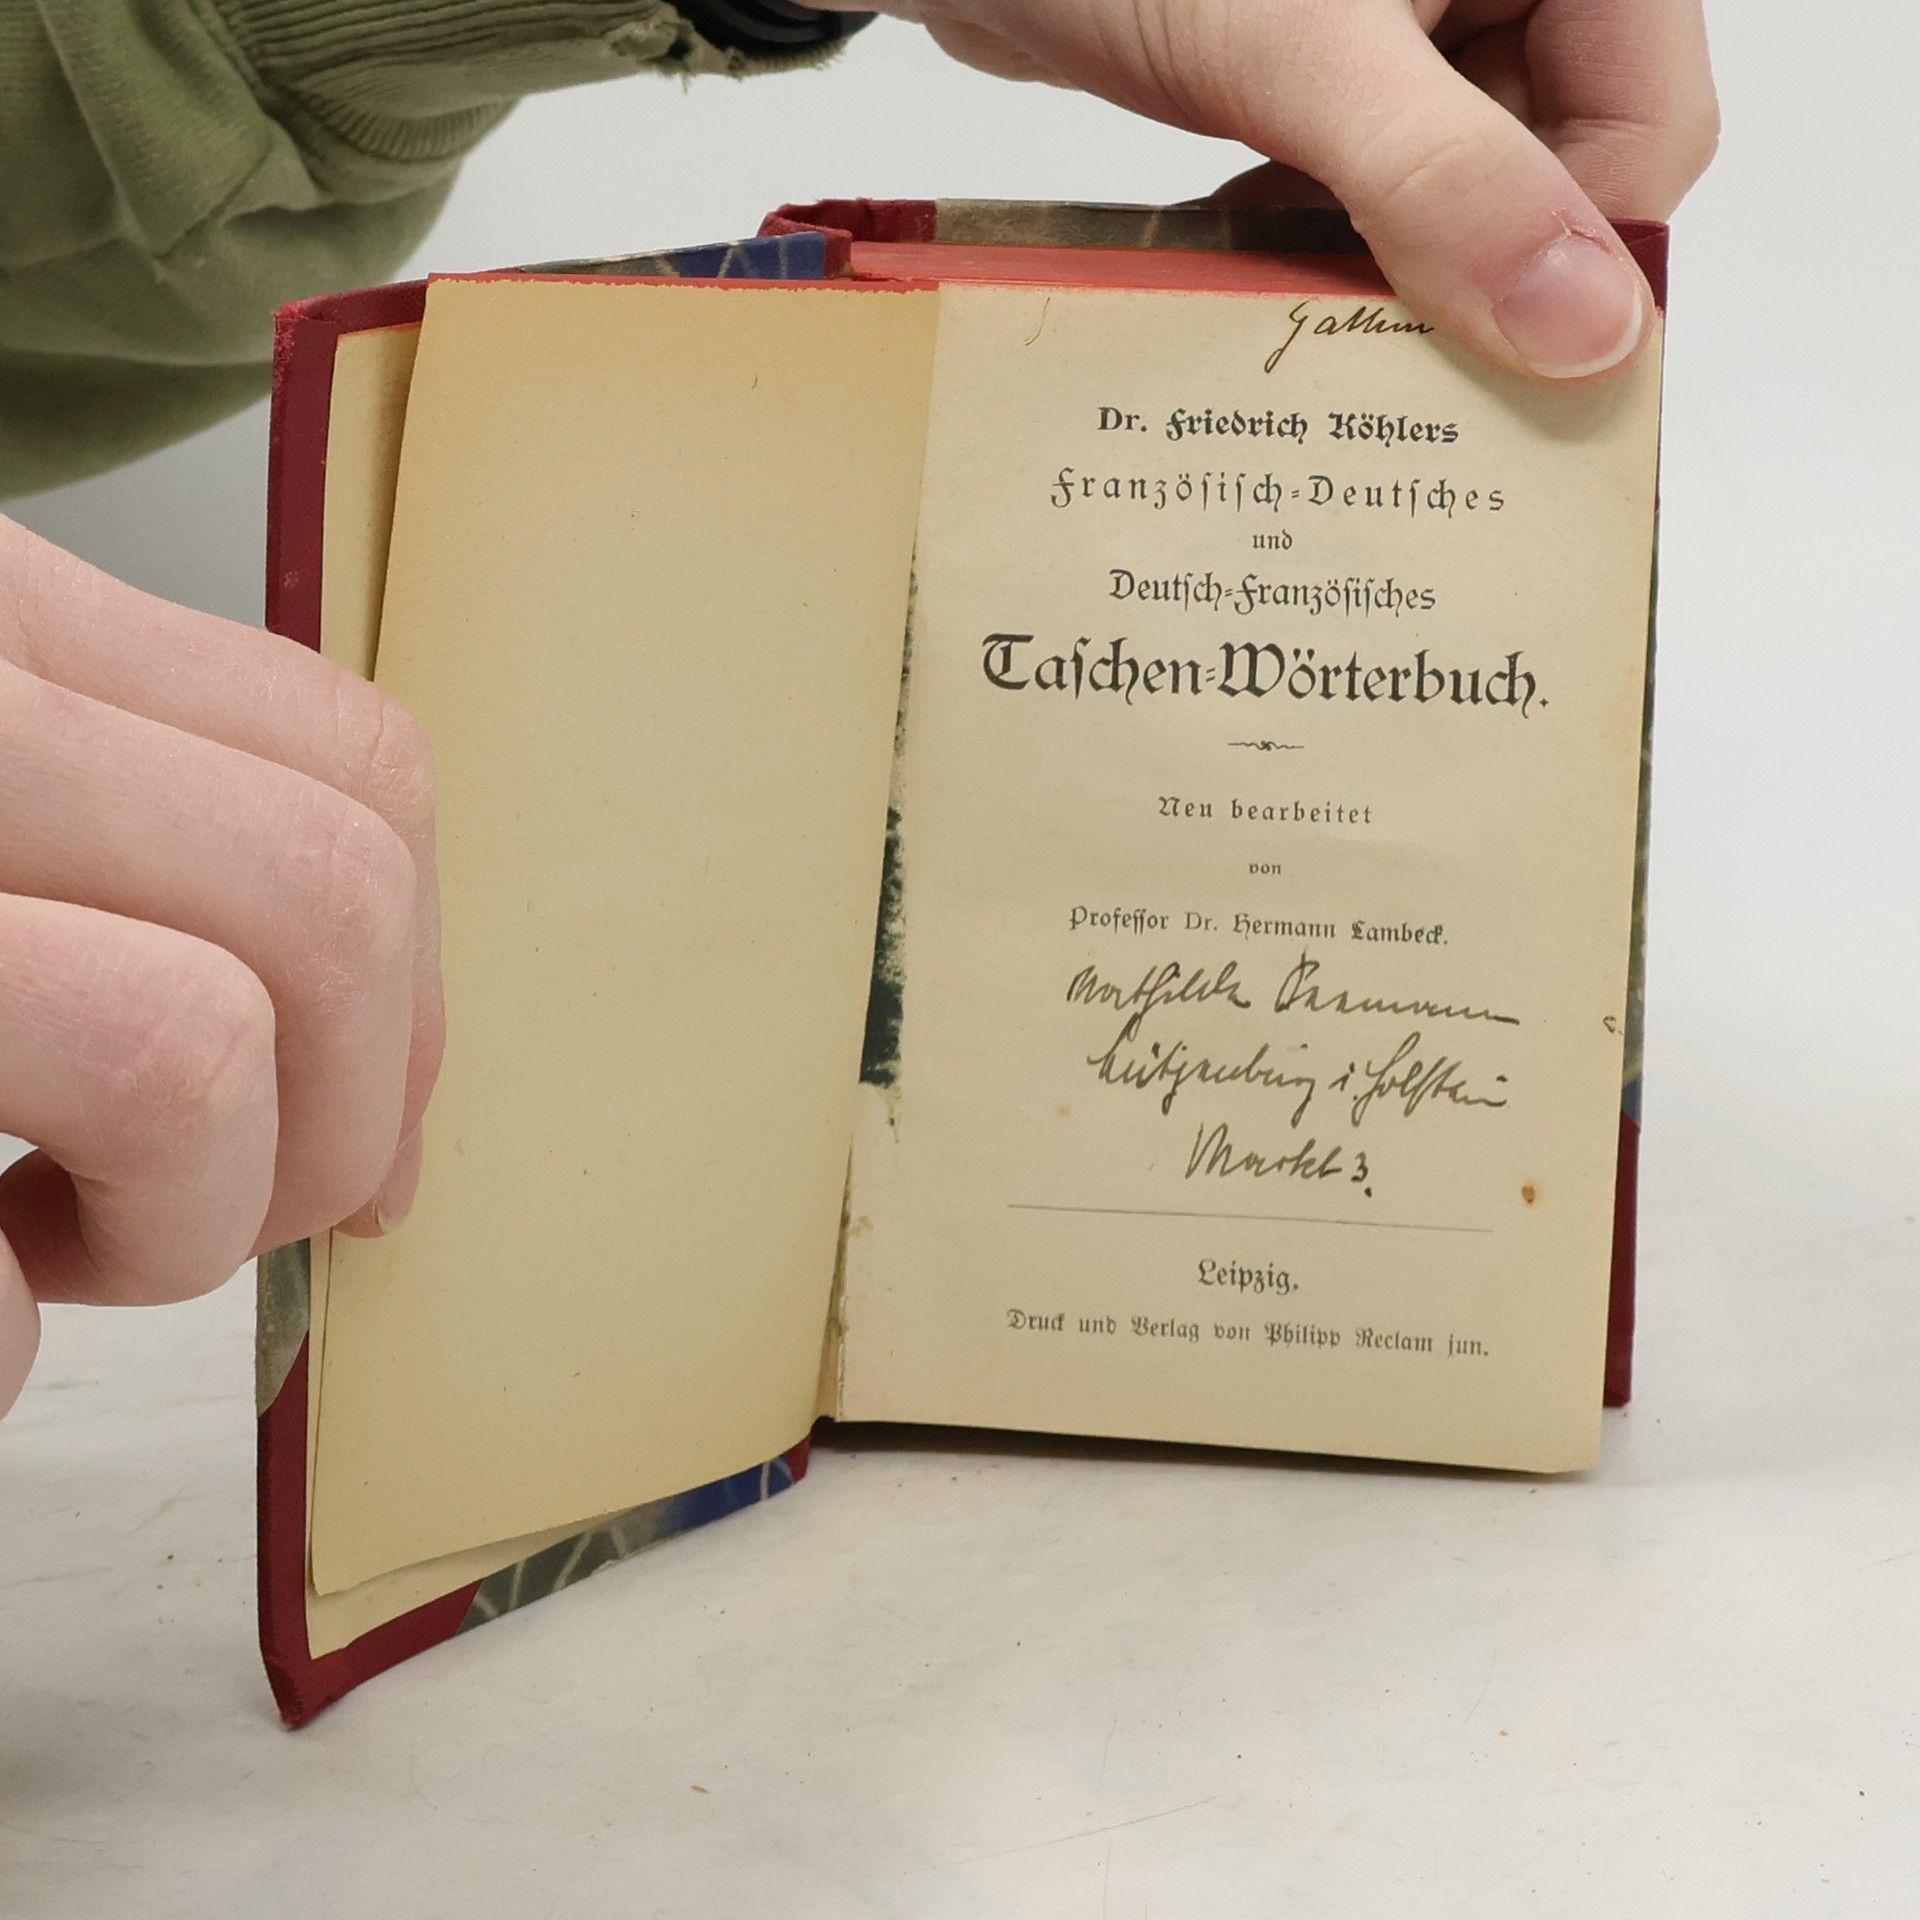 Dr. Friedrich Köhlers
Franzöſiſch-Deutſches
und
Deutſch-Franzöſiſches
Taſchen-Wörterbuch.
Neu bearbeitet
von
Profeſſor Dr. Hermann Lambeck.
Mathilde
Lütjenburg i. Holſtein
Markt 3.
Leipzig.
Druck und Verlag von Philipp Reclam jun.